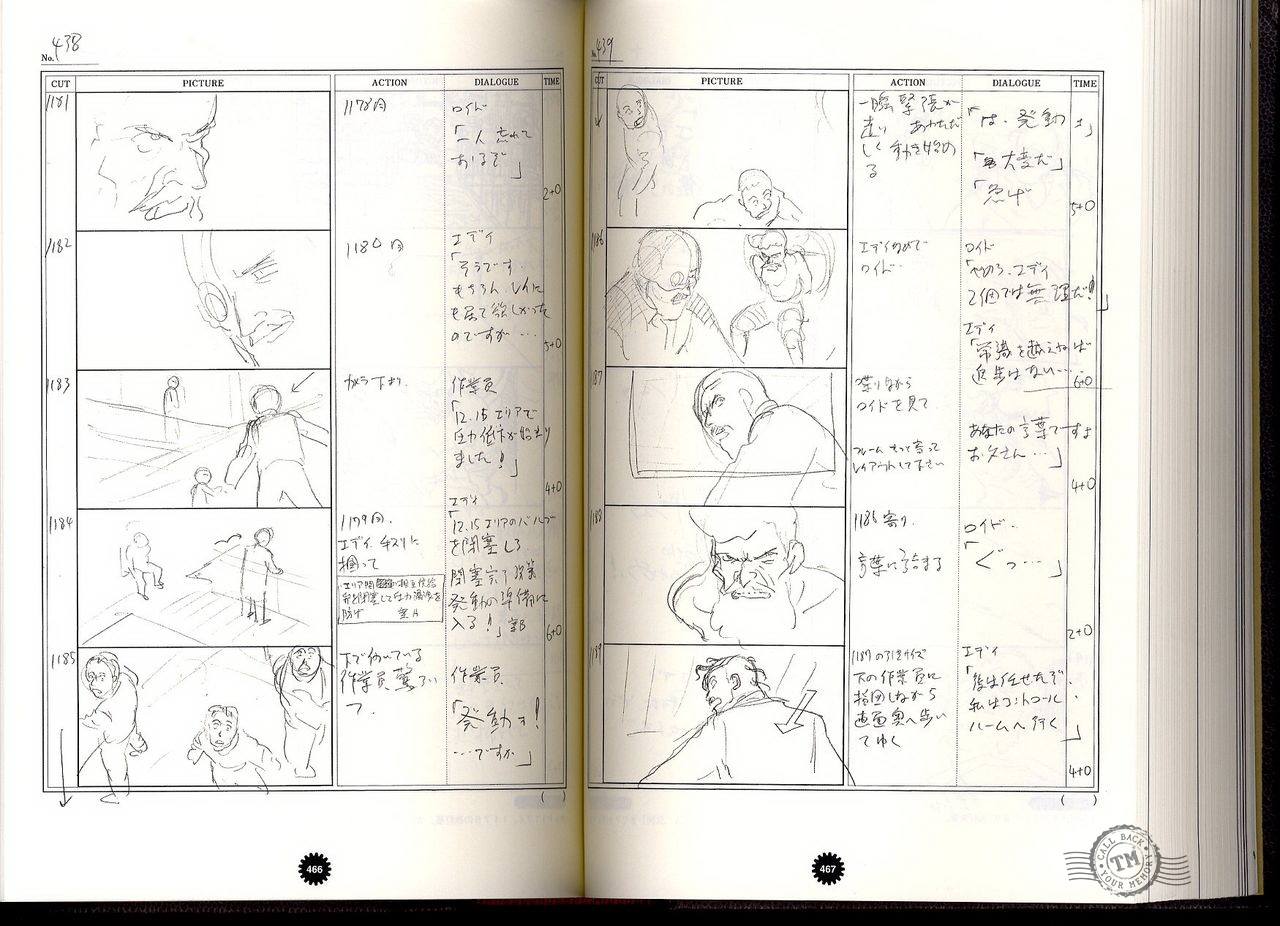 No. 438
CUT
PICTURE
ACTION
DIALOGUE
TIME
1181
1178同
ロイド
「一人 忘れて
おるぞ」
2+0
1182
1180 同
エディ
「そうです
もちろん レイに
も居て欲しかった
のですが …
5+0
1183
作業員
「12.15 エリアで
圧力低下が始まり
ました!」
4+0
1184
1179同.
エディ 手スリに
掴って
エディ
「12.15 エリアのバルブ
を閉塞しろ
閉塞完了次第
発動の準備に
入る!」
6+0
1185
下で働いている
作業員 驚ろい
て.
作業員
「発動ォ!
…ですか」
( )
466
No. 439
CUT
PICTURE
ACTION
DIALOGUE
TIME
一瞬緊張が
走り あわただ
しく動き始め
る
「は・発動ォ」
「大変だ」
「急げ
5+0
1186
エディなめて
ロイド・
ロイド
「やめろ、エディ
2個では無理だ!」
エディ
「常識を越えねば
進歩はない…
6+0
1187
喋りながら
ロイドを見て
フレーム もっと寄って
レイアウトして下さい
あなたの言葉ですよ
お父さん…」
4+0
1188
1186 寄り.
言葉に詰まる
ロイド・
「ぐっ…」
2+0
1189
1187の引きサイズ
下の作業員に
指図しながら
画面奥へ歩い
てゆく
エディ
「後は任せたぞ.
私はコントロール
ルームへ行く」
4+0
( )
467
CALL BACK
TM
YOUR MEMORY